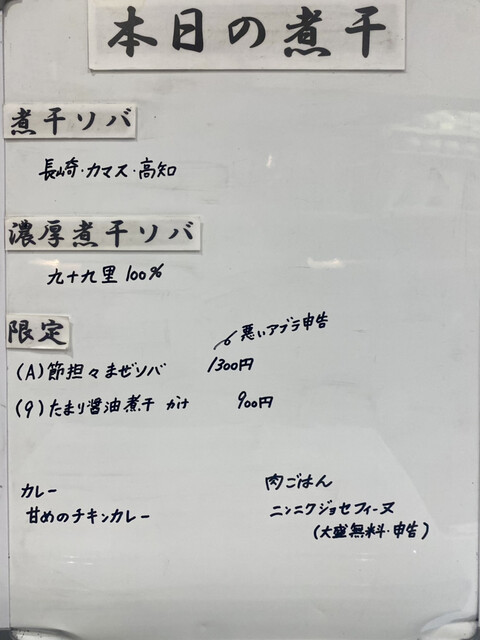 本日の煮干
煮干ソバ
長崎・カマス・高知
濃厚煮干ソバ
九十九里 100%
限定
悪いアブラ申告
(A) 節担々まぜソバ 1300円
(9) たまり醤油煮干 かけ 900円
カレー
甘めのチキンカレー
肉ごはん
ニンニクジョセフィーヌ
(大盛無料・申告)